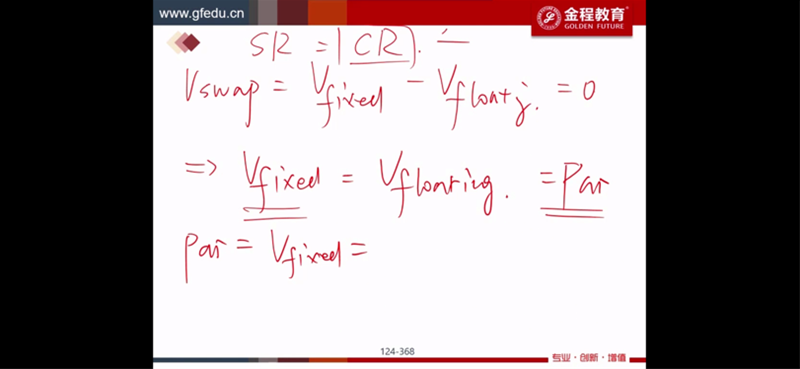 www.gfedu.cn
金程教育
GOLDEN FUTURE
SR = CR.
Vswap = Vfixed - Vfloatg. = 0
=> Vfixed = Vfloating. = Par
Par = Vfixed =
124-368
专业·创新·增值